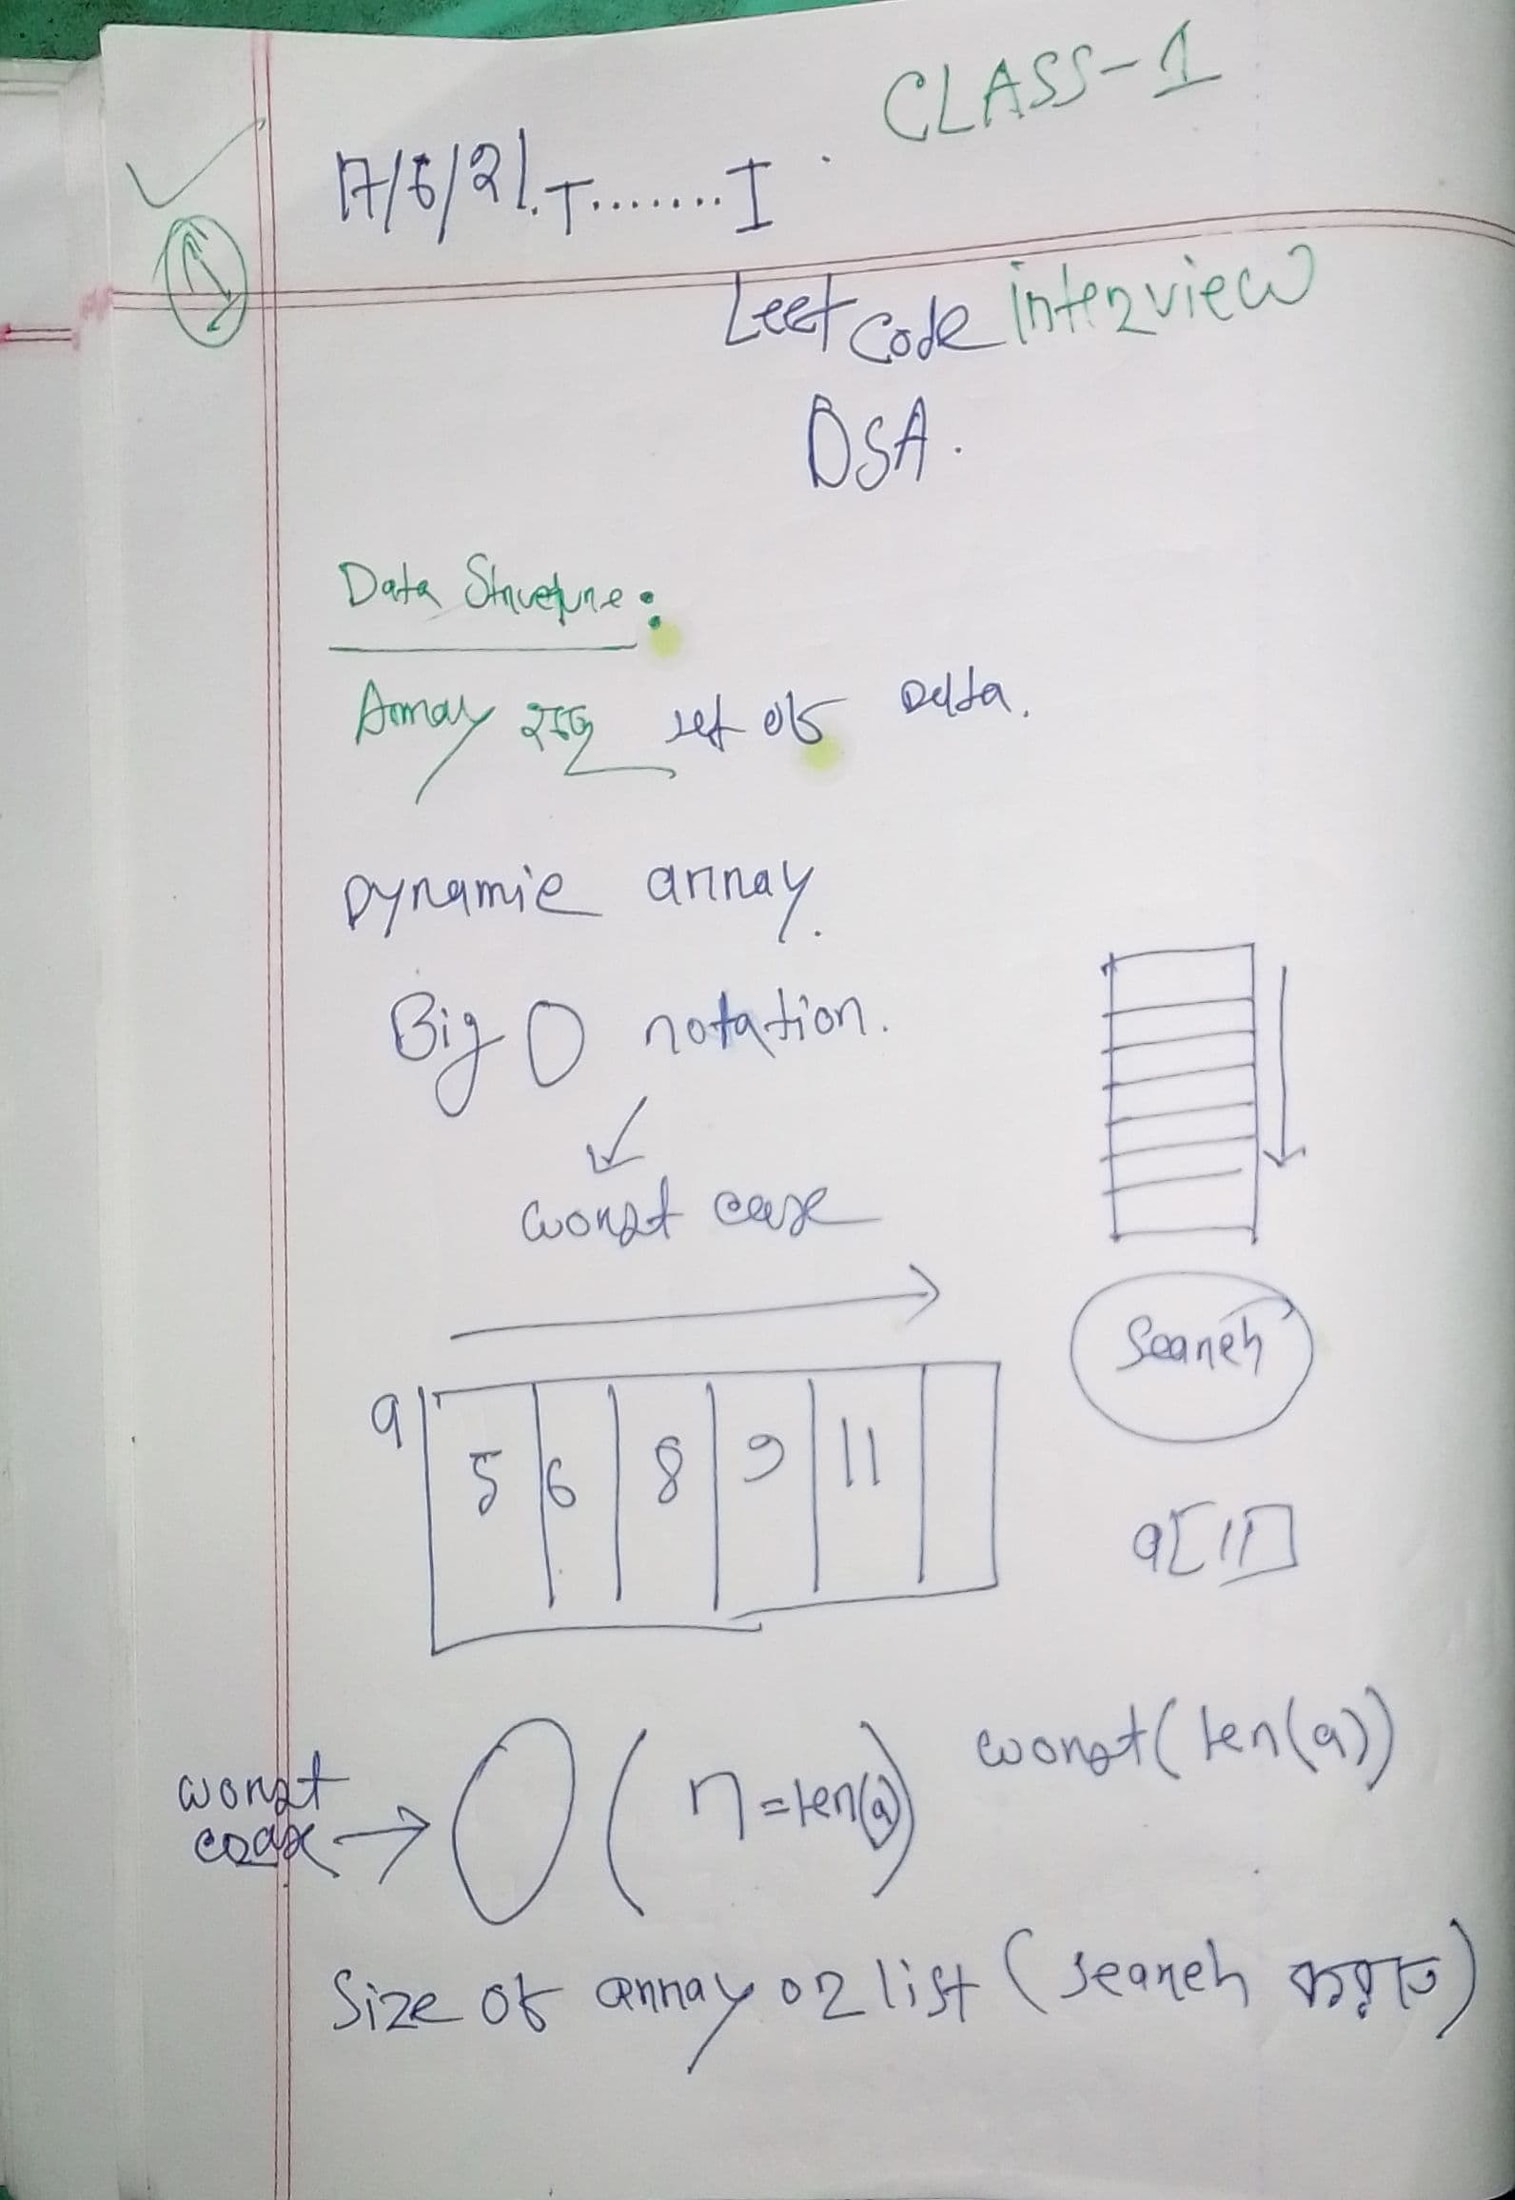 CLASS-1
17/6/21.T.......I
Leetcode interview
DSA.
Data Structure:
Array হচ্ছে set of Data.
Dynamic array.
Big O notation.
worst case
Search
a 5 6 8 9 11
a[11]
worst case → O(n=len(a)) worst(len(a))
Size of array or list (search করতে)